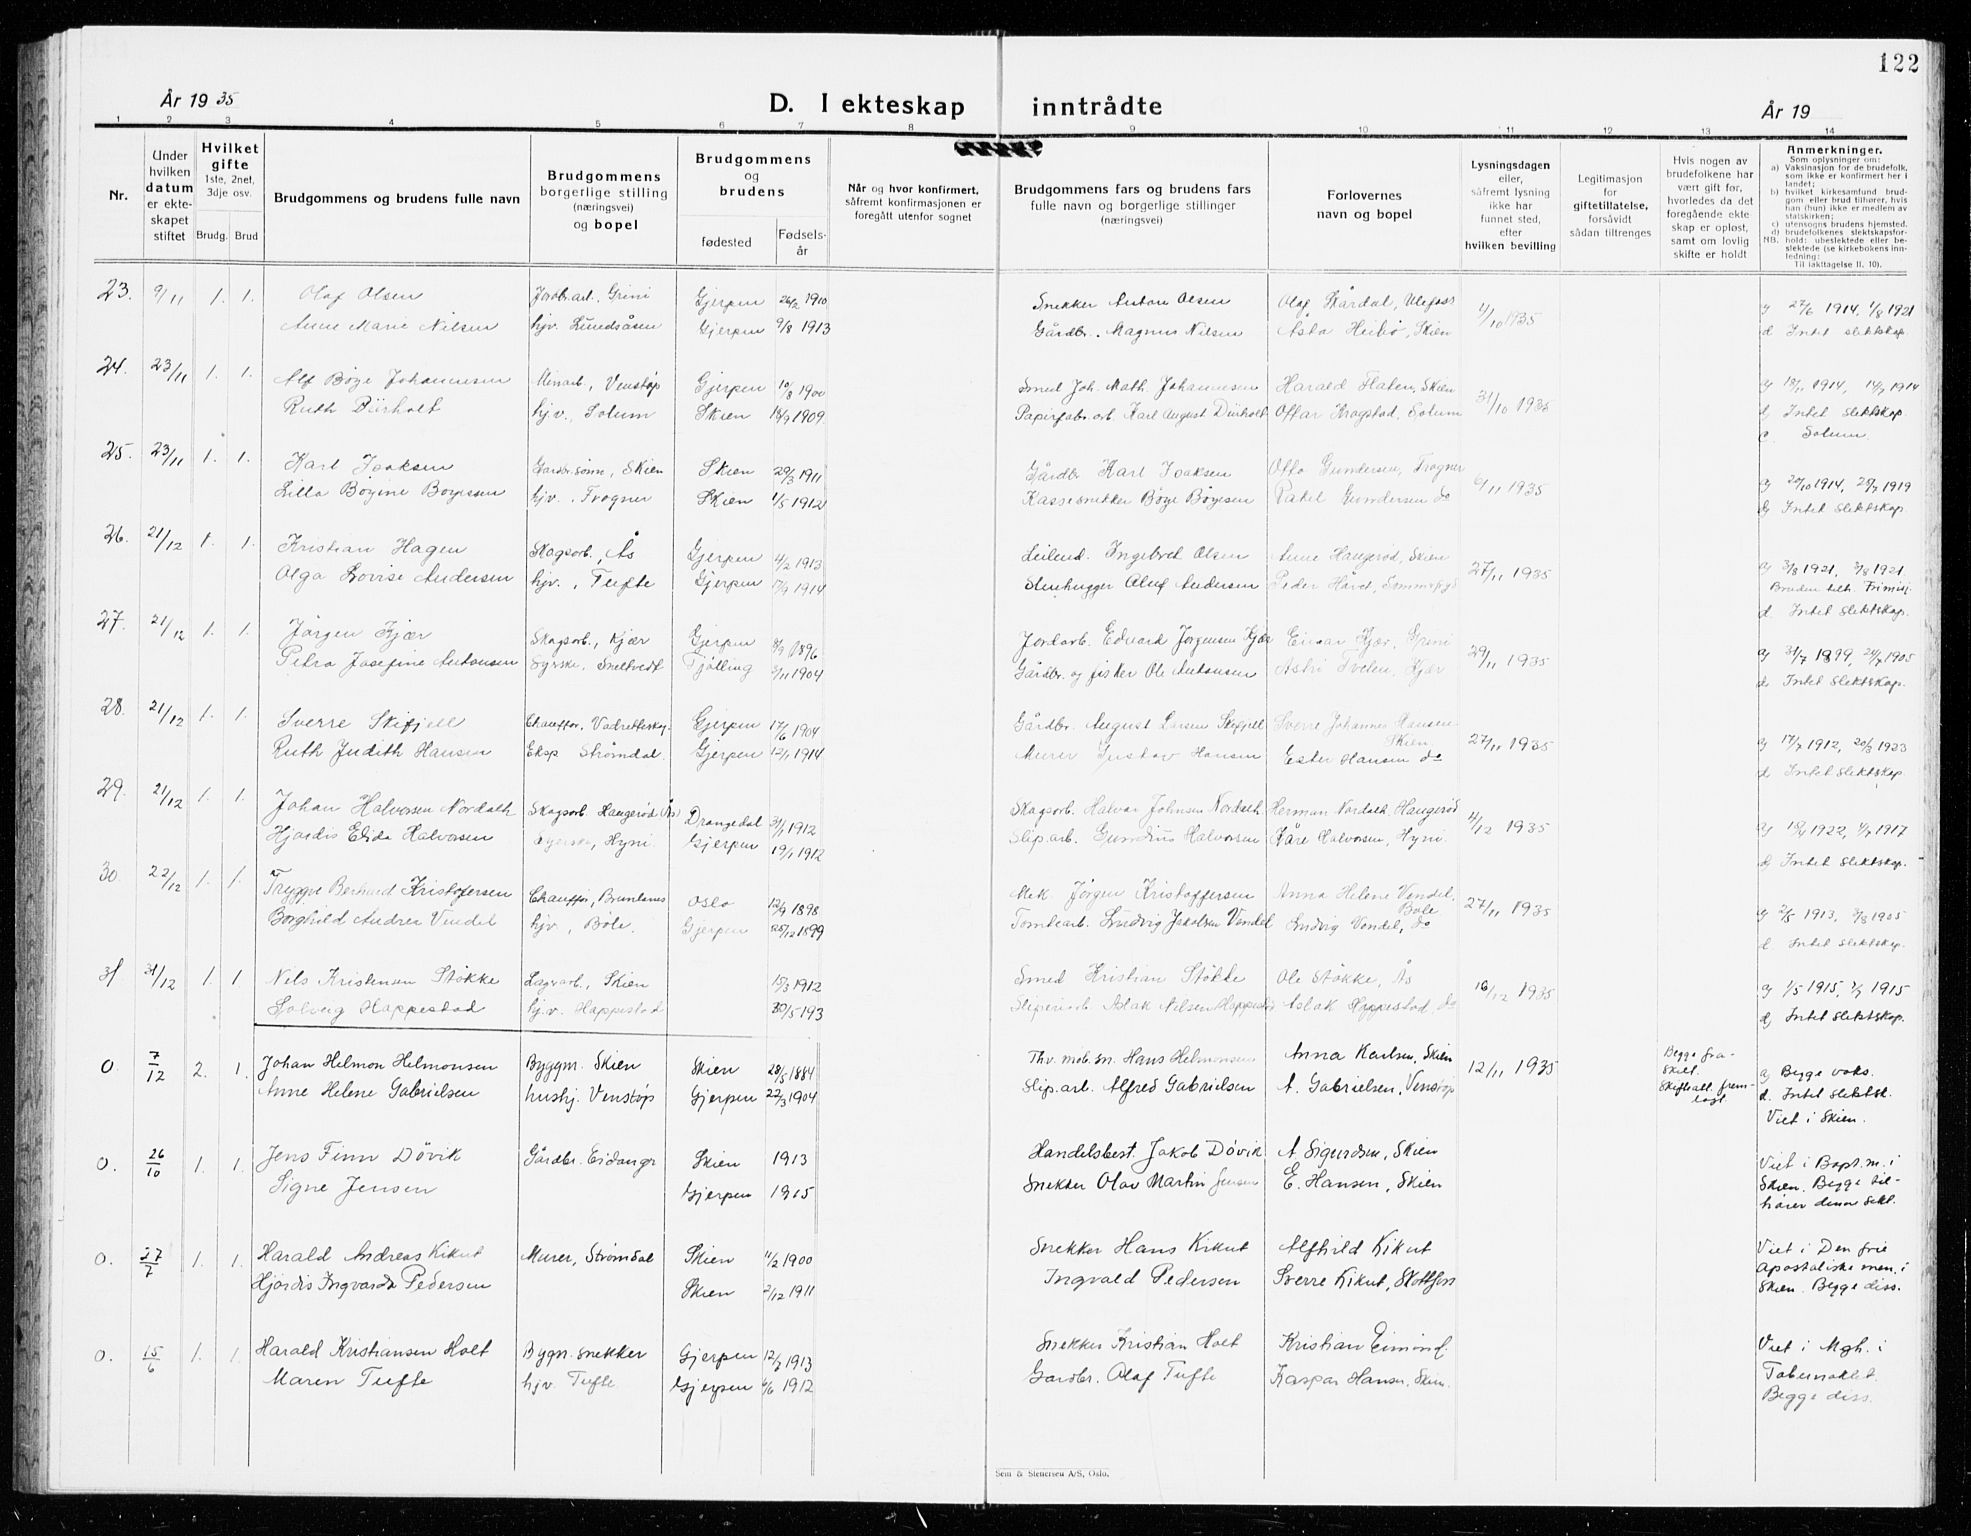 122
År 1935
D. I ekteskap inntrådte
År 19
1 2 3 4 5 6 7 8 9 10 11 12 13 14
Nr.
Under hvilken datum er ekteskapet stiftet
Hvilket gifte 1ste, 2net, 3dje osv.
Brudg. Brud
Brudgommens og brudens fulle navn
Brudgommens borgerlige stilling (næringsvei) og bopel
Brudgommens og brudens
fødested
Fødselsår
Når og hvor konfirmert, såfremt konfirmasjonen er foregått utenfor sognet
Brudgommens fars og brudens fars fulle navn og borgerlige stillinger (næringsvei)
Forlovernes navn og bopel
Lysningsdagen eller, såfremt lysning ikke har funnet sted, efter hvilken bevilling
Legitimasjon for giftetillatelse, forsåvidt sådan tiltrenges
Hvis nogen av brudefolkene har vært gift før, hvorledes da det foregående ekteskap er opløst, samt om lovlig skifte er holdt
Anmerkninger.
Som oplysninger om:
a) Vaksinasjon for de brudefolk, som ikke er konfirmert her i landet;
b) hvilket kirkesamfund brudgom eller brud tilhører, hvis han (hun) ikke er medlem av statskirken;
c) utensogns brudens hjemsted.
d) brudefolkenes slektskapsforhold: ubeslektede eller beslektede (se kirkebokens innledning:
NB. Til iakttagelse II, 10).
23. 9/11 1. 1. Olaf Olsen Jordbr.arb., Grini Gjerpen 26/2 1910 Snekker Anton Olsen Olaf Skårdal, Ulefoss 1/10 1935 a) 27/6 1914, 1/8 1921
Anne Marie Nilsen hjv. Lundsåsen Gjerpen 9/8 1913 Gårdbr. Magnus Nilsen Asta Heibø, Skien d Intet slektskap.
24. 23/11 1. 1. Alf Bøge Johannesen Minarb., Venstøp Gjerpen 10/8 1900 Smed Joh. Math. Johannesen Harald Flaten, Skien 31/10 1935 a) 18/11 1914, 14/7 1914
Ruth Dürholt hjv., Solum Skien 18/9 1909 Papirfabr.arb. Karl August Dürholt Ottar Kragstad, Solum d) Intet slektskap.
c. Solum
25. 23/11 1. 1. Karl Isaksen Gårdbr.sønn, Skien Skien 29/3 1911 Gårdbr. Karl Isaksen Otto Gundersen, Frogner 6/11 1935 a) 20/10 1914, 28/7 1919
Lilla Bøgine Bøgesen hjv., Frogner Skien 1/5 1912 Kassesnekker Bøge Bøgesen Rakel Gundersen do d) Intet slektskap.
26. 21/12 1. 1. Kristian Hagen Skogsarb., Ås Gjerpen 4/2 1913 Leilend. Ingebret Olsen Anne Haugerød, Skien 27/11 1935 a) 3/8 1921, 3/8 1921.
Olga Lovise Andersen hjv., Tufte Gjerpen 17/9 1914 Stenhugger Oluf Andersen Peder Håvet, Bruden tilh. Frimisj.
d. Intet slektskap.
27. 21/12 1. 1. Jørgen Kjær Skogsarb., Kjær Gjerpen 8/9 1896 Jordarb. Edvard Jørgensen Kjær Einar Kjær, Grini 29/11 1935 a) 31/7 1899, 24/7 1905
Petra Josefine Antonsen Syerske, Sneltvedt Tjølling 5/11 1904 Gårdbr. og fisker Ole Antonsen Astri Tvelen, Kjær d. Intet slektskap.
28. 21/12 1. 1. Sverre Skifjell Chauffør, Gjerpen 17/6 1904 Gårdbr. August Larsen Skifjell Sverre Johannes Hansen Skien 27/11 1935 a) 17/7 1912, 20/3 1923
Ruth Judith Hansen Eksp Strømdal. Gjerpen 12/1 1914 Murer Gustav Hansen Ester Hansen do d Intet slektskap
29. 21/12 1. 1. Johan Halvorsen Nordath Skogsarb. Haugerød (Ås) Drangedal 31/1 1912 Skogsarb. Halvor Johnsen Nordath Herman Nordath, Haugerød 4/12 1935 a) 18/6 1922, 4/7 1917
Hjørdis Elida Halvorsen Syerske, Hyni Gjerpen 19/1 1912 Slip.arb. Gundius Halvorsen Kåre Halvorsen, Hyni d) Intet slektskap.
30. 22/12 1. 1. Tryggve Berhard Kristoffersen Chauffør, Brunlanes Oslo 12/9 1898 Mek. Jørgen Kristoffersen Anna Helene Vendel, Bøle 27/11 1935 a) 2/5 1913, 3/8 1905
Borghild Andrea Vendel hjv., Bøle. Gjerpen 25/12 1899 Tomtearb. Ludvig Jakobsen Vendel Ludvig Vendel, do d. Intet slektskap.
31 31/12 1. 1. Nils Kristensen Støkke Lagerarb., Skien 15/3 1912 Smed Kristian Støkke Ole Støkke, Ås 16/12 1935 a) 1/5 1915, 1/7 1915
Solveig Hoppestad hjv. Hoppestad 30/5 193 Sliperiarb. Aslak Nilsen Hoppestad Aslak Hoppestad, do d) Intet slektskap.
0 7/12 2. 1. Johan Helmon Helmonsen Byggm. Skien Skien 28/5 1884 Thv. mob.sn. Hans Helmonsen Anna Karlsen, Skien 12/11 1935 Begge fraskilt. Skifteatt. fremlagt. a) Begge vaks.
Anne Helene Gabrielsen hushj. Venstøp Gjerpen 22/3 1904 Slip.arb. Alfred Gabrielsen A. Gabrielsen, Venstøp d. Intet slektsk.
Viet i Skien.
0. 26/10 1. 1. Jens Finn Døvik Gårdbr. Eidanger Skien 1913 Handelsbest. Jakob Døvik A Sigurdsen, Skien Viet i Bapt.m. i
Signe Jensen Gjerpen 1915 Snekker Olav Martin Jensen E. Hansen, Skien Skien. Begge tilhører denne sekt.
0. 27/7 1. 1. Harald Andreas Kikut Murer, Strømdal Skien 11/2 1900 Snekker Hans Kikut Alfhild Kikut Viet i Den frie
Hjørdis Ingvarda Pedersen Skien 2/12 1911 Ingvald Pedersen Sverre Kikut, Skotfoss apostoliske men. i Skien. Begge diss.
0. 15/6 1. 1. Harald Kristiansen Holt Bygn. snekker Gjerpen 12/7 1913 Snekker Kristian Holt Kristian Eimind. Viet i Mgh. i
Maren Tufte hjv. Tufte Gjerpen 6/6 1912 Gårdbr. Olaf Tufte Kaspar Hansen, Skien. Tabernaklet.
Begge diss.
Sem & Stenersen A/S, Oslo.